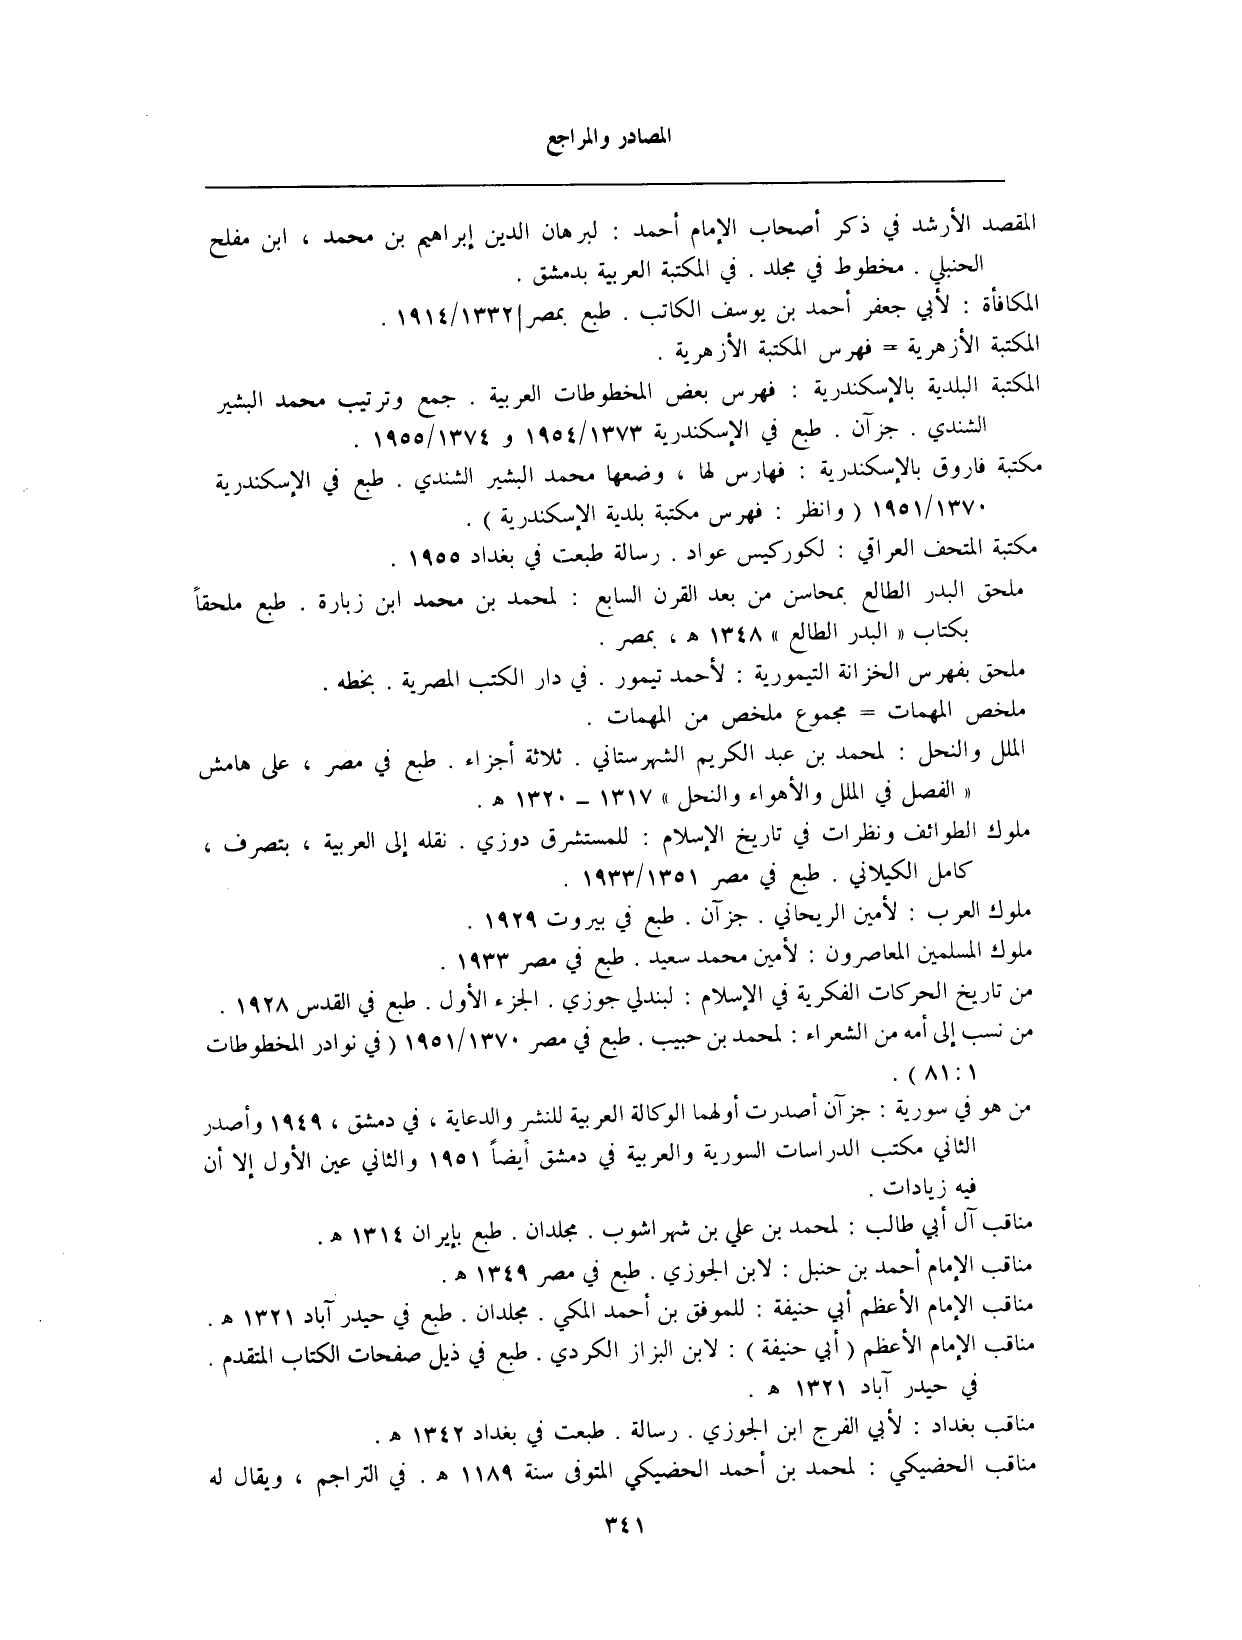 المصادر والمراجع
المقصد الأرشد في ذكر أصحاب الإمام أحمد : لبرهان الدين إبراهيم بن محمد ، ابن مفلح
الحنبلي . مخطوط في مجلد . في المكتبة العربية بدمشق .
المكافأة : لأبي جعفر أحمد بن يوسف الكاتب . طبع بمصر ١٩١٤/١٣٣٢ .
المكتبة الأزهرية = فهرس المكتبة الأزهرية .
المكتبة البلدية بالإسكندرية : فهرس بعض المخطوطات العربية . جمع وترتيب محمد البشير
الشندي . جزآن . طبع في الإسكندرية ١٩٥٤/١٣٧٣ و ١٩٥٥/١٣٧٤ .
مكتبة فاروق بالإسكندرية : فهارس لها ، وضعها محمد البشير الشندي . طبع في الإسكندرية
١٩٥١/١٣٧٠ ( وانظر : فهرس مكتبة بلدية الإسكندرية ) .
مكتبة المتحف العراقي : لكوركيس عواد . رسالة طبعت في بغداد ١٩٥٥ .
ملحق البدر الطالع بمحاسن من بعد القرن السابع : لمحمد بن محمد ابن زبارة . طبع ملحقاً
بكتاب « البدر الطالع » ١٣٤٨ ه ، بمصر .
ملحق بفهرس الخزانة التيمورية : لأحمد تيمور . في دار الكتب المصرية . بخطه .
ملخص المهمات = مجموع ملخص من المهمات .
الملل والنحل : لمحمد بن عبد الكريم الشهرستاني . ثلاثة أجزاء . طبع في مصر ، على هامش
« الفصل في الملل والأهواء والنحل » ١٣١٧ – ١٣٢٠ ه .
ملوك الطوائف ونظرات في تاريخ الإسلام : للمستشرق دوزي . نقله إلى العربية ، بتصرف ،
كامل الكيلاني . طبع في مصر ١٩٣٣/١٣٥١ .
ملوك العرب : لأمين الريحاني . جزآن . طبع في بيروت ١٩٢٩ .
ملوك المسلمين المعاصرون : لأمين محمد سعيد . طبع في مصر ١٩٣٣ .
من تاريخ الحركات الفكرية في الإسلام : لبندلي جوزي . الجزء الأول . طبع في القدس ١٩٢٨ .
من نسب إلى أمه من الشعراء : لمحمد بن حبيب . طبع في مصر ١٩٥١/١٣٧٠ ( في نوادر المخطوطات
١ : ٨١ ) .
من هو في سورية : جزآن أصدرت أولهما الوكالة العربية للنشر والدعاية ، في دمشق ، ١٩٤٩ وأصدر
الثاني مكتب الدراسات السورية والعربية في دمشق أيضاً ١٩٥١ والثاني عين الأول إلا أن
فيه زيادات .
مناقب آل أبي طالب : لمحمد بن علي بن شهراشوب . مجلدان . طبع بإيران ١٣١٤ ه .
مناقب الإمام أحمد بن حنبل : لابن الجوزي . طبع في مصر ١٣٤٩ ه .
مناقب الإمام الأعظم أبي حنيفة : للموفق بن أحمد المكي . مجلدان . طبع في حيدر آباد ١٣٢١ ه .
مناقب الإمام الأعظم ( أبي حنيفة ) : لابن البزاز الكردي . طبع في ذيل صفحات الكتاب المتقدم .
في حيدر آباد ١٣٢١ ه .
مناقب بغداد : لأبي الفرج ابن الجوزي . رسالة . طبعت في بغداد ١٣٤٢ ه .
مناقب الحضيكي : لمحمد بن أحمد الحضيكي المتوفى سنة ١١٨٩ ه . في التراجم ، ويقال له
٣٤١